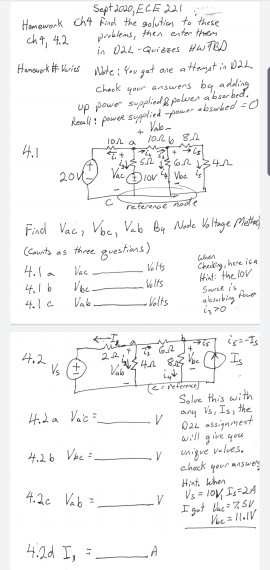 Sept 2020, ECE 221
Homework Ch4 Find the solution to these
ch 4, 4.2 problems, then enter them
in D2L - Quizzes HW TBD
Homework # Varies Note: You get one attempt in D2L
check your answers by adding
up power supplied & power absorbed.
Recall: power supplied - power absorbed = 0
+ Vab -
10Ω a 10Ω b 8Ω
4.1
20V
5Ω
6Ω
4Ω
Vac
10V
Vbc
C
reference node
Find Vac, Vbc, Vab By Node Voltage Method
(Counts as three questions)
4.1 a Vac ____ Volts
4.1 b Vbc ____ Volts
4.1 c Vab ____ Volts
When
Checking, here is a
Hint: the 10V
Source is
absorbing Power
i3>0
4.2
Vs
Ix
2Ω
a
6Ω
i5
i5=-Is
Vab
4Ω
8Ω
Vbc
Is
(c = reference)
Solve this with
any Vs, Is, the
D2L assignment
will give you
unique values.
check your answer
Hint. When
Vs = 10V, Is=2A
I got Vac = 7.5V
Vbc = 11.1V
4.2a Vac = ____ V
4.2b Vbc = ____ V
4.2c Vab = ____ V
4.2d Ix = ____ A